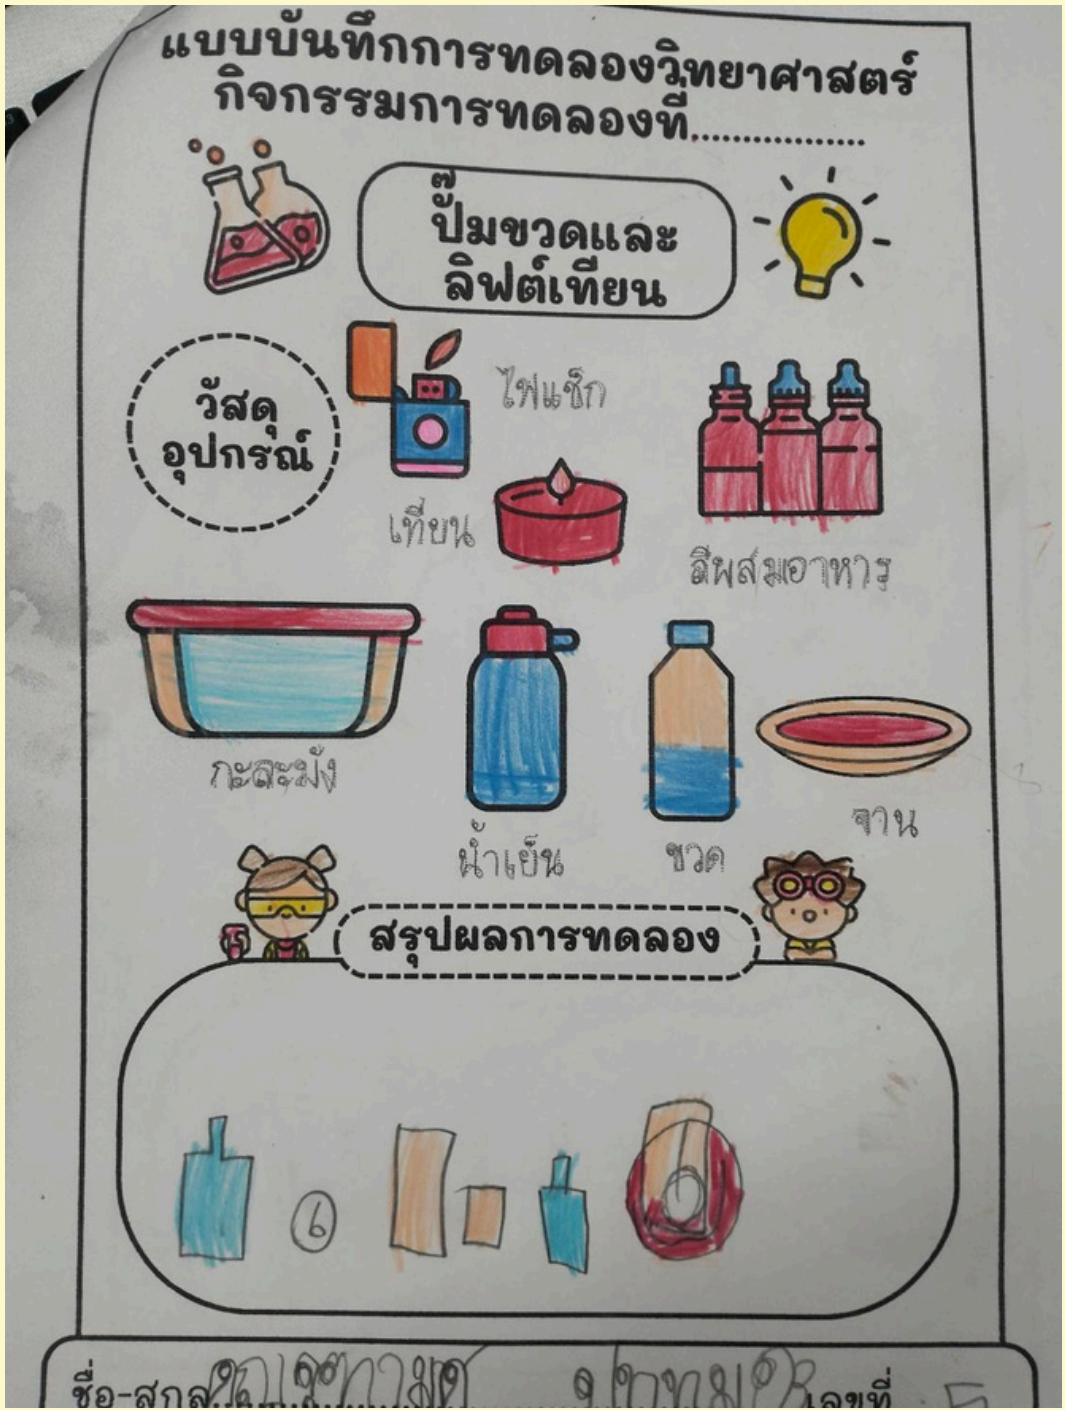 แบบบันทึกการทดลองวิทยาศาสตร์
กิจกรรมการทดลองที่................
ปั๊มขวดและ
ลิฟต์เทียน
วัสดุ
อุปกรณ์
ไฟแช็ก
เทียน
สีผสมอาหาร
กะละมัง
น้ำเย็น
ขวด
จาน
สรุปผลการทดลอง
ชื่อ-สกุล
เลขที่ 5